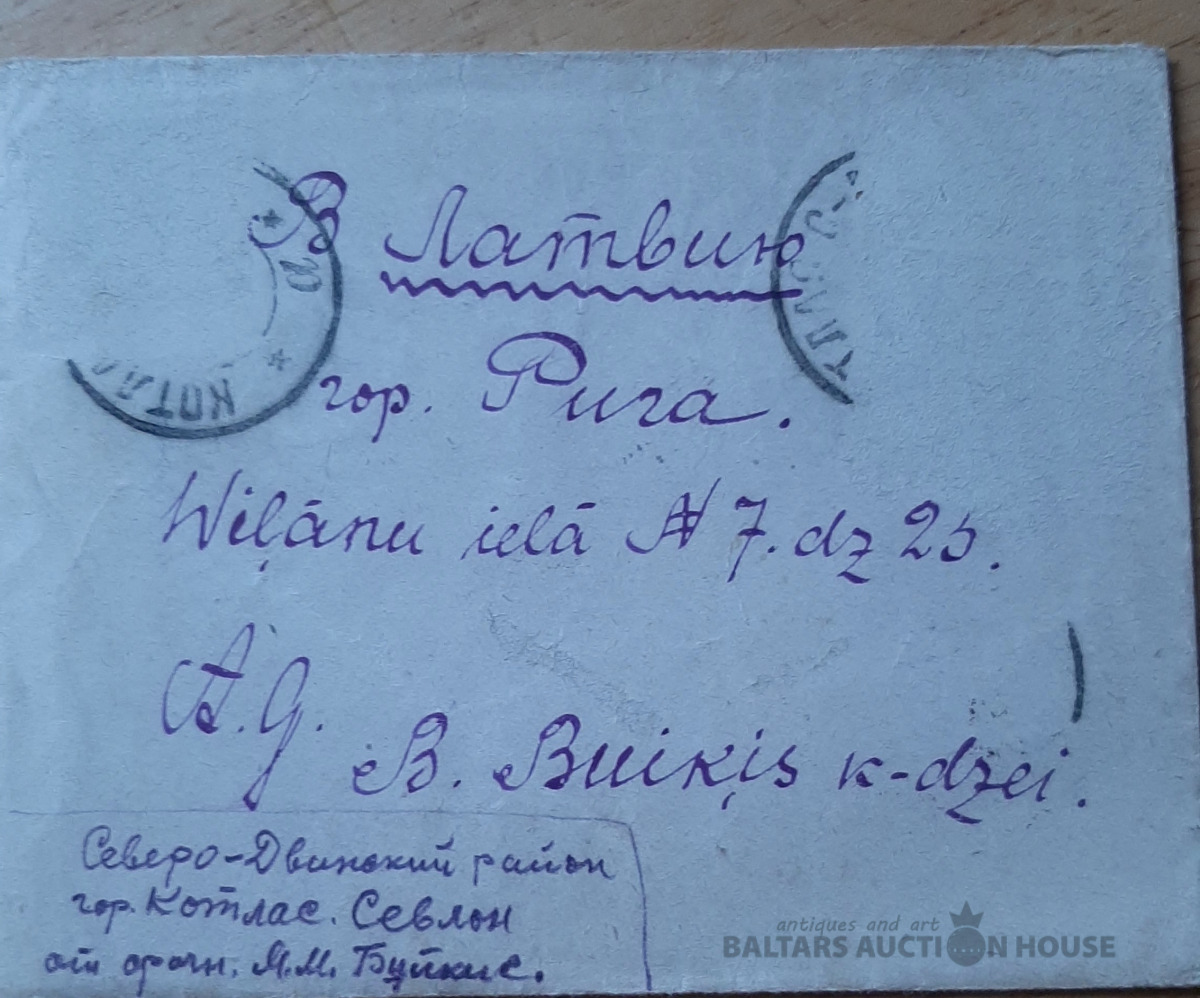 В Латвию
гор. Рига.
Wiļānu ielā № 7. dz 25.
A.G.
B. Buiķis k-dzei.
Северо-Двинский район
гор. Котлас. Севлон
от срочн. М.М. Буйкис.
КОТЛ
antiques and art
BALTARS AUCTION HOUSE